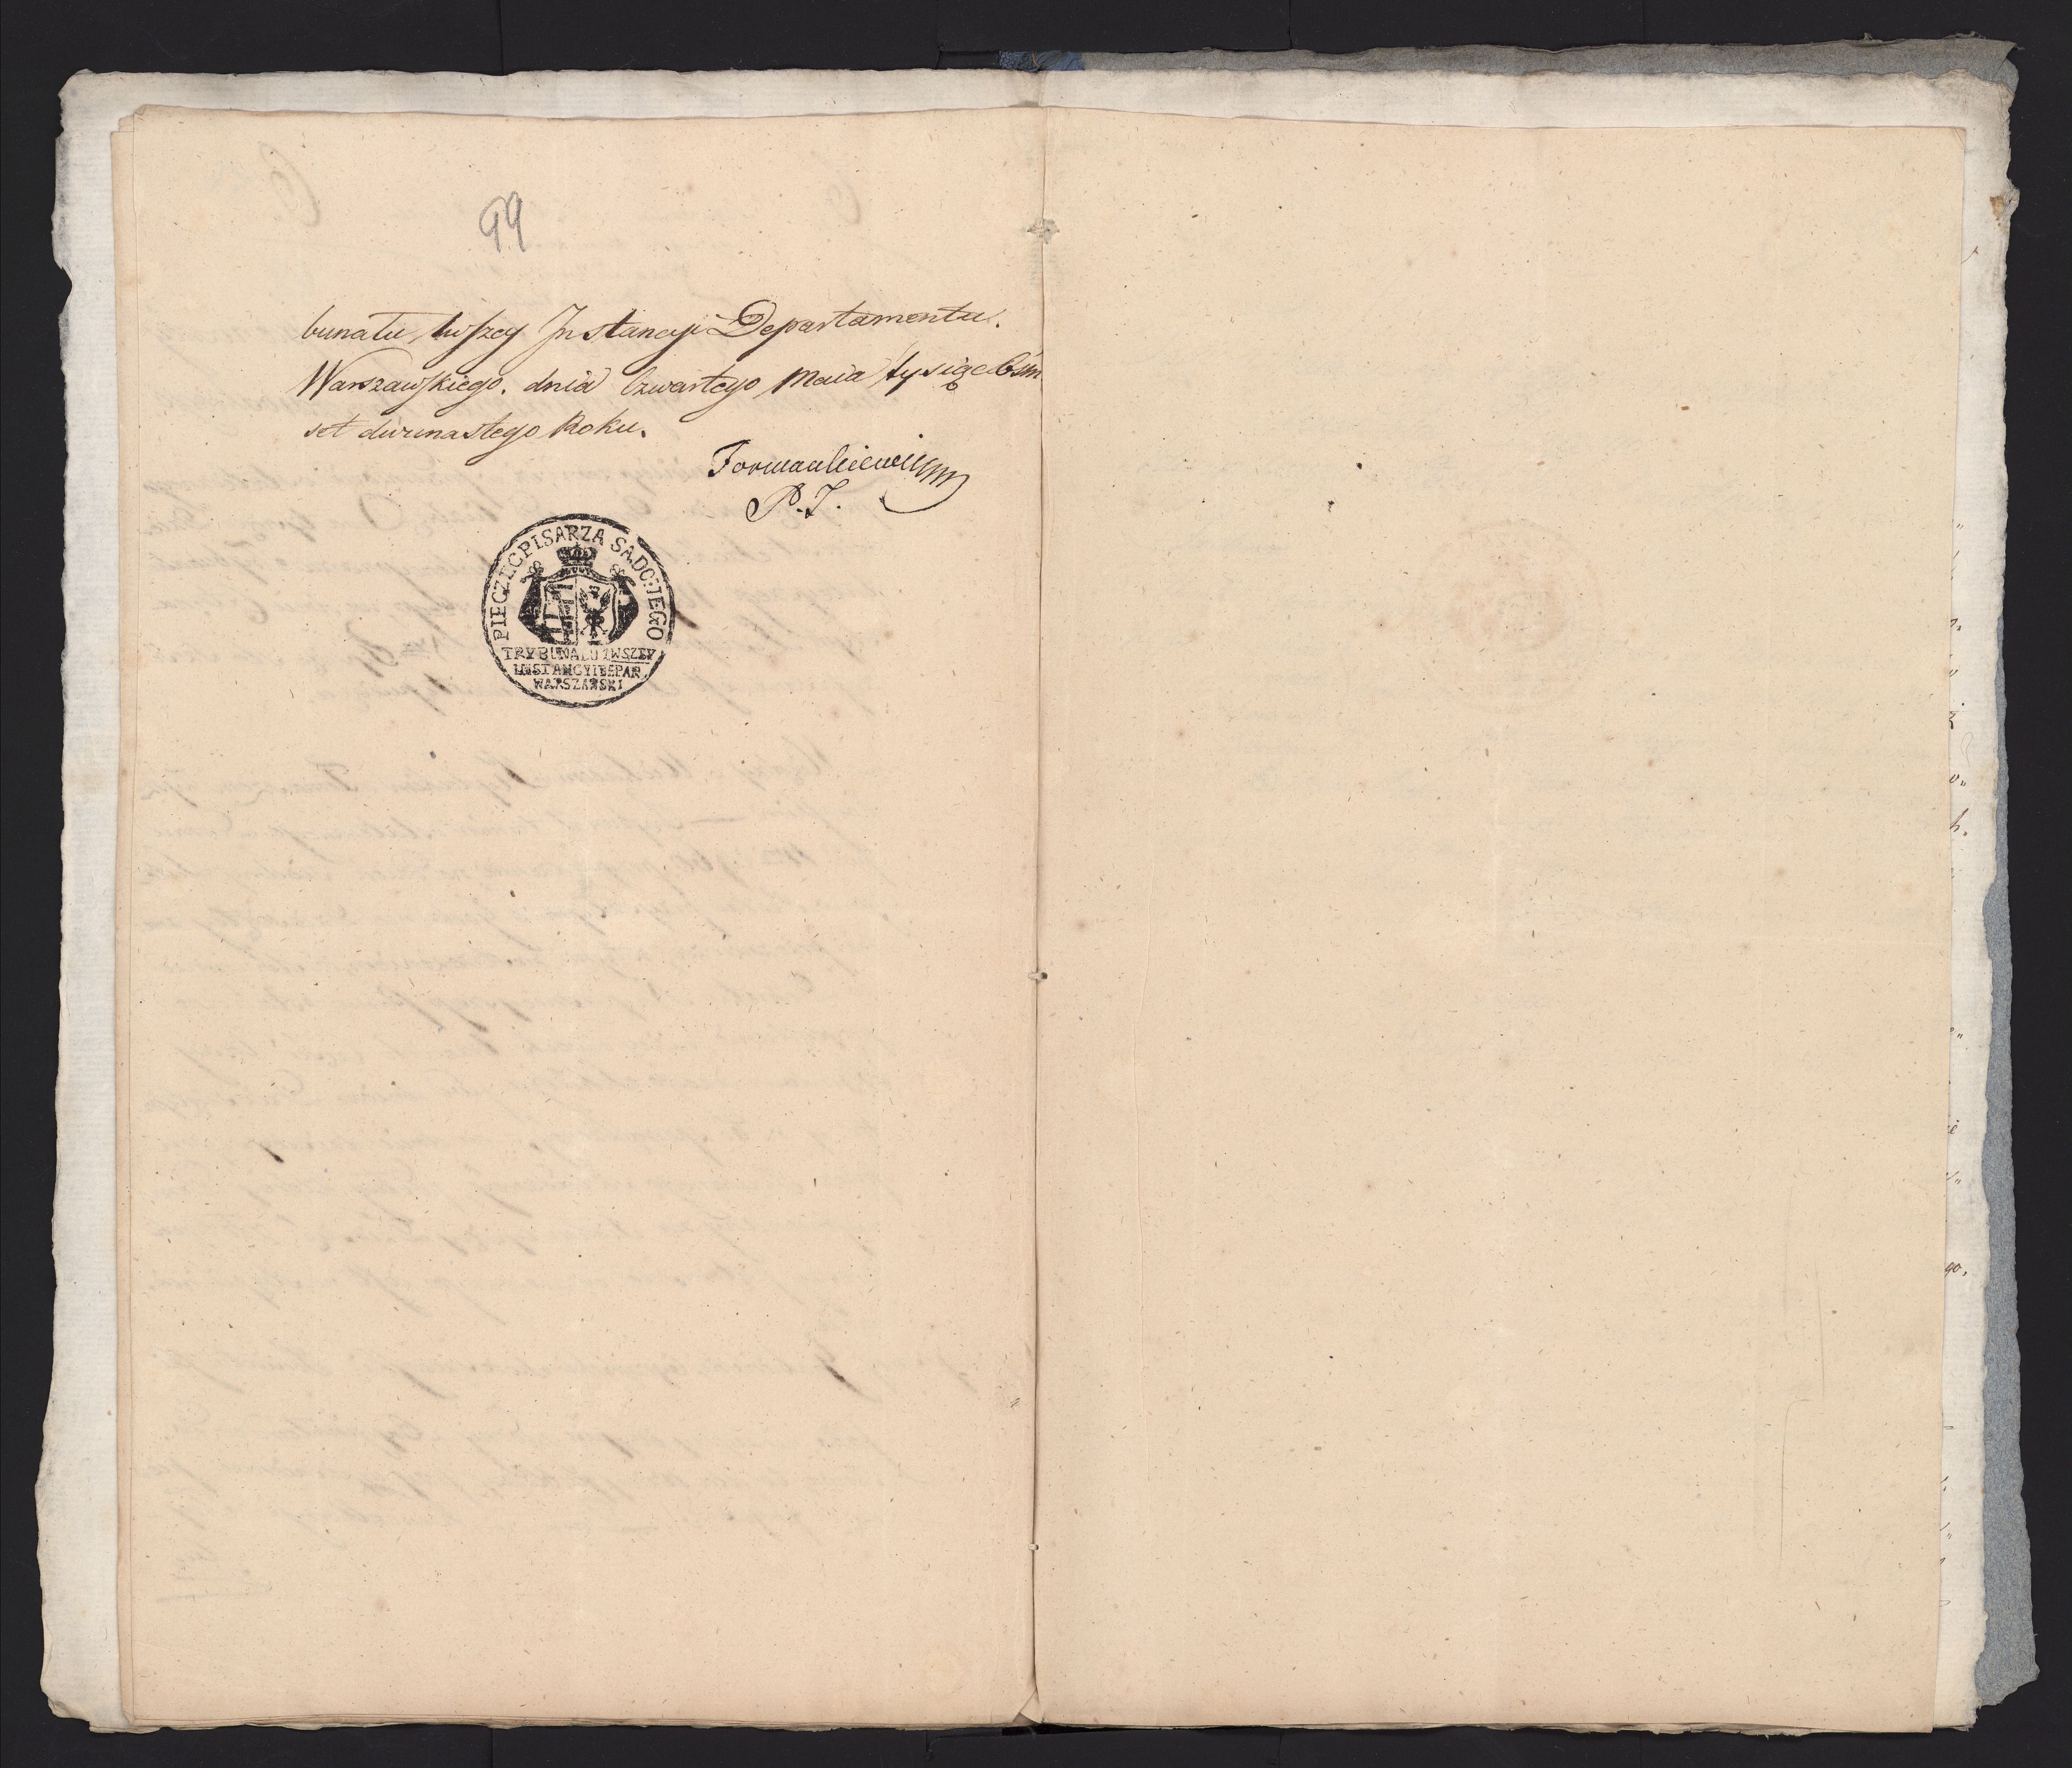 99
bunatu 1wszey Instancyi Departamentu.
Warszawskiego. dnia Czwartego Maia tysiąc Osm
set dwunastego Roku.
P. J.
PIECZĘC PISARZA SĄDOWEGO
TRYBUNAŁU 1WSZEY
INSTANCYI DEPAR.
WARSZAWSKI